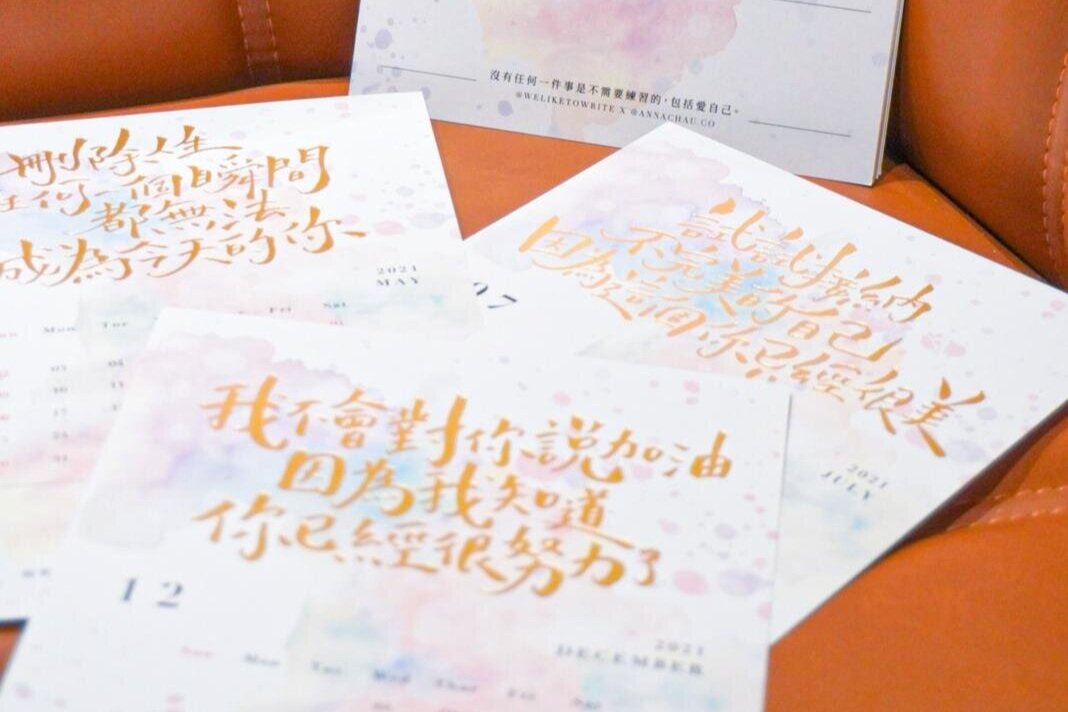 沒有任何一件事是不需要練習的，包括愛自己。
@WELIKETOWRITE X @ANNACHAU.CO
刪除人生
任何一個瞬間
都無法
成為今天的你
2021
MAY
Mon Tue Fri Sat
07
試試接納
不完美的自己
因為這個你已經很美
2021
JULY
我不會對你說加油
因為我知道
你已經很努力了
12
2021
DECEMBER
Sun Mon Tue Wed Thu Fri Sat